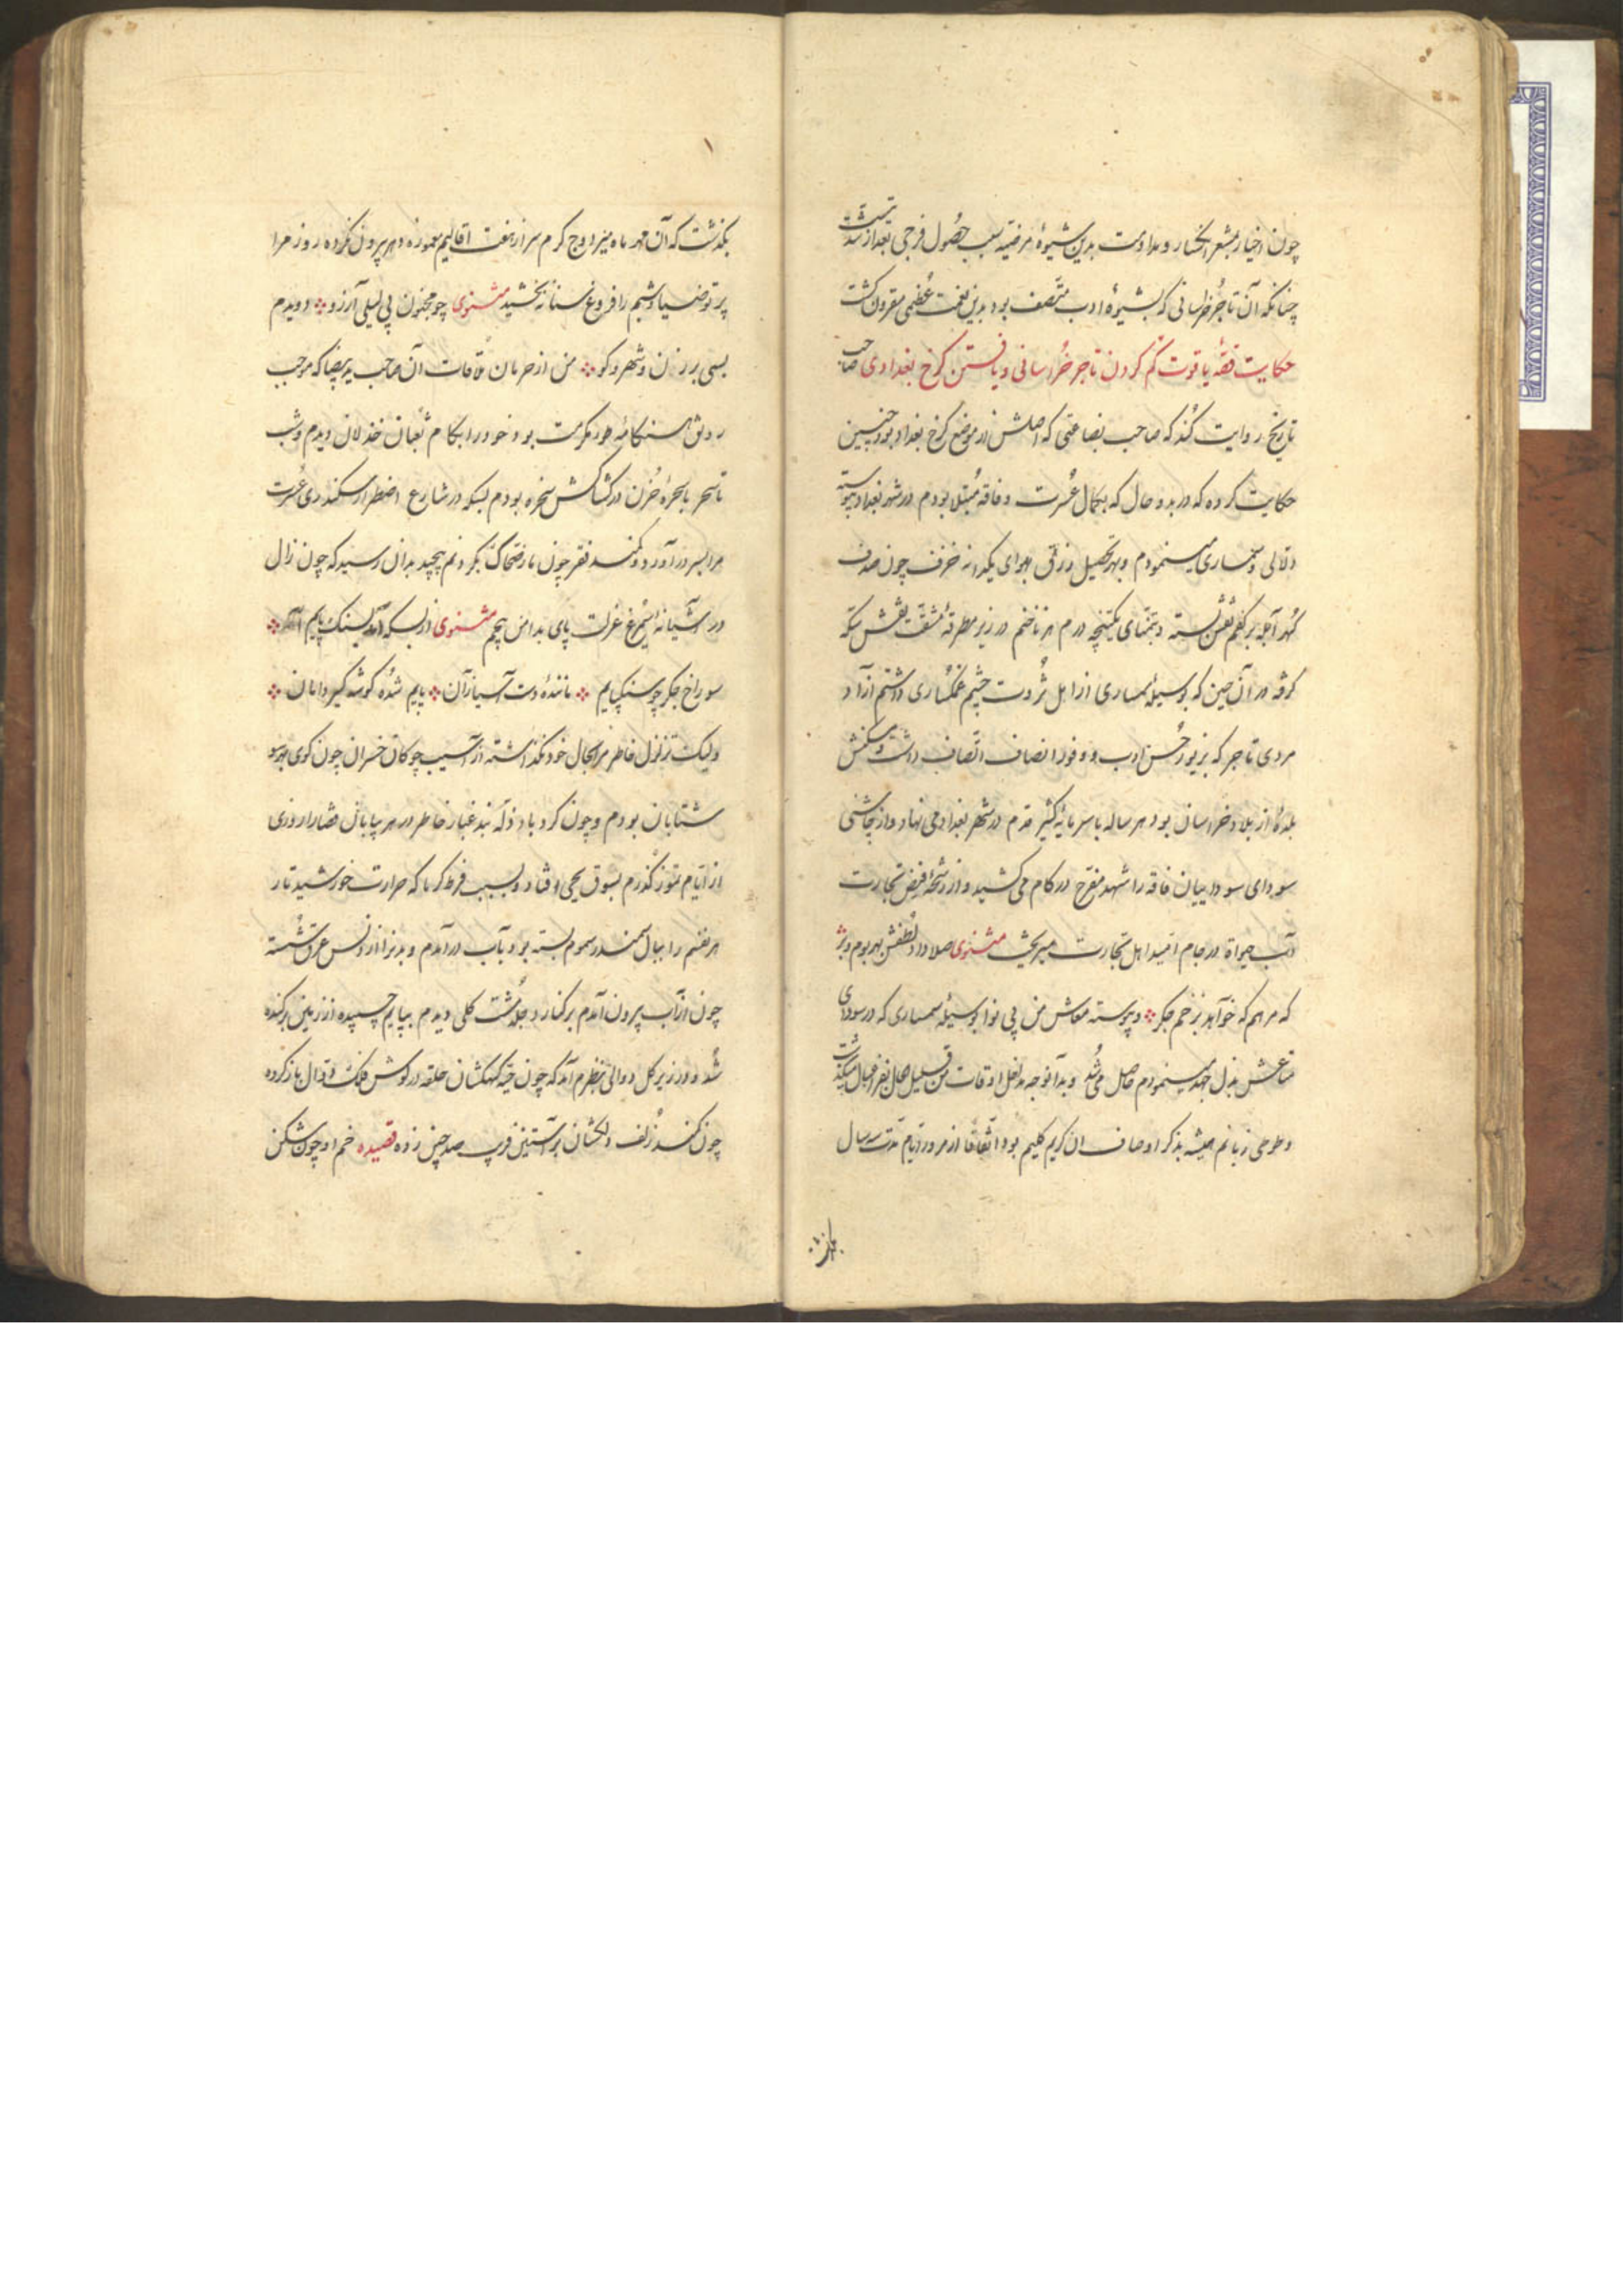 چون اخیار مشعر انکسار و مداومت بدین شیوهٔ مرضیه سبب حصول فرجی بعد از شدتست
چنانکه آن تاجر خراسانی که بشیوهٔ ادب متصف بود بدین نعمت عظمی مقرون گشت
حکایت قصهٔ یاقوت گم کردن تاجر خراسانی و یافتن کرخ بغدادی صاحب
تاریخ روایت کند که صاحب بضاعتی که اصلش از موضع کرخ بغداد بود چنین
حکایت کرده که در بدو حال که بکمال عسرت و فاقه مبتلا بودم در شهر بغداد پیوسته
دلالی و سمساری مینمودم و بهر تحصیل رزق بهوای یکدانه خزف چون صدف
گهر آبله بر کفم نقش بسته و بتمنای یکتنچه درم هر ناخنم در زیر مطرقهٔ مشقت نقش سکه
گرفته در آن حین که بوسیلهٔ سمساری از اهل ثروت چشم غمگساری داشتم آزاد
مردی تاجر که بزیور حسن ادب و وفور انصاف اتصاف داشت و مسکنش
بلدهٔ از بلاد خراسان بود هر ساله با سرمایهٔ کثیر قدم در شهر بغداد می نهاد و از چاشنی
سودای سوداییان فاقه را شهد مفرح در کام می کشید و از رشحهٔ فیض تجارت
آب حیوة در جام امید اهل تجارت میریخت مثنوی صلا داد لطفش بهر بوم و بر
که مرهم که خواهد بزخم جگر و پیوسته معاش من بی نوا بوسیلهٔ سمساری که در سودای
متاعش بذل جهد مینمودم حاصل می شد و بدآنوجه اوقات من قلیل الحال بفراغبال میگذشت
و طوطی زبانم همیشه بذکر اوصاف آن کریم کلیم بود اتفاقا از مرور ایام مدت سه سال
بگذشت که آن مهر ماه منیر اوج کرم سر از هفت اقالیم معمورهٔ دهر بیرون نکرده روز مرا
پرتو ضیا و شبم را فروغ سنا نبخشید مثنوی چو مجنون پی لیلی آرزو دویدم
بسی برزن و شهر و کو من از حرمان ملاقات آن صاحب ید بیضا که موجب
رونق هنگامهٔ طور مکرمت بود خود را بکام ثعبان خذلان دیدم و شب
تا سحر با سحرهٔ حزن در کشاکش سخره بودم بسکه در شارع اضطرار سکندری عسرت
مرا بسر در آورد و کمند فقر چون مار ضحاک بگردنم پیچید بدان رسید که چون زال
در آشیانهٔ سیمرغ عزلت پای بدامن پیچم مثنوی از بسکه آمد بسنگ پایم
سوراخ جگر چو سنگ پایم مانندهٔ دست آسیازآن پایم شده گوشه گیر دامان
ولیک تزلزل خاطر مرا بحال خود نگذاشته از آسیب چوکان خسران چون گوی بهر سو
شتابان بودم و چون گردباد غبار خاطر در هر بیابانی قضا را روزی
از ایام تموز گذرم بسوق یحیی افتاد و بسبب فرط گرما که حرارت خورشید تار
هر نفسم را ببال سمندر سموم بسته بود بآب درآمدم و بدنرا از دنس عرق شسته
چون از آب بیرون آمدم بر کنار دجله مشت گلی دیدم بپایم چسپیده از زمین برکنده
شد و در زیر گل دوالی بنظرم آمد که چون کهکشان حلقه در گوش فلک دوال باز کرده
چون کمند زلف دلکشان بر آستین فریب صد چین زده قصیده خم او چون شکن